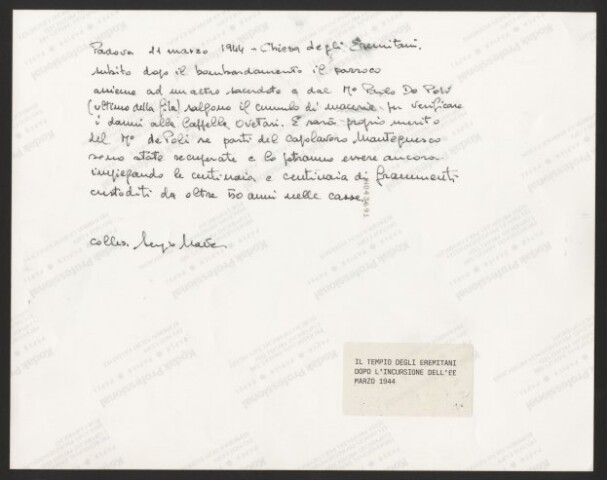 Padova 11 marzo 1944 - Chiesa degli Eremitani.
subito dopo il bombardamento il parroco
assieme ad un altro sacerdote e dal Mº Paolo De Poli
(ultimo della fila) salgono il cumulo di macerie per verificare
i danni alla Cappella Ovetari. E sarà proprio merito
del Mº de Poli se parti del capolavoro Mantegnesco
sono state recuperate e lo potranno essere ancora
impiegando le centinaia e centinaia di frammenti
custoditi da oltre 50 anni nelle casse.
collez.
IL TEMPIO DEGLI EREMITANI
DOPO L'INCURSIONE DELL'££
MARZO 1944
Kodak Professional
PAPER